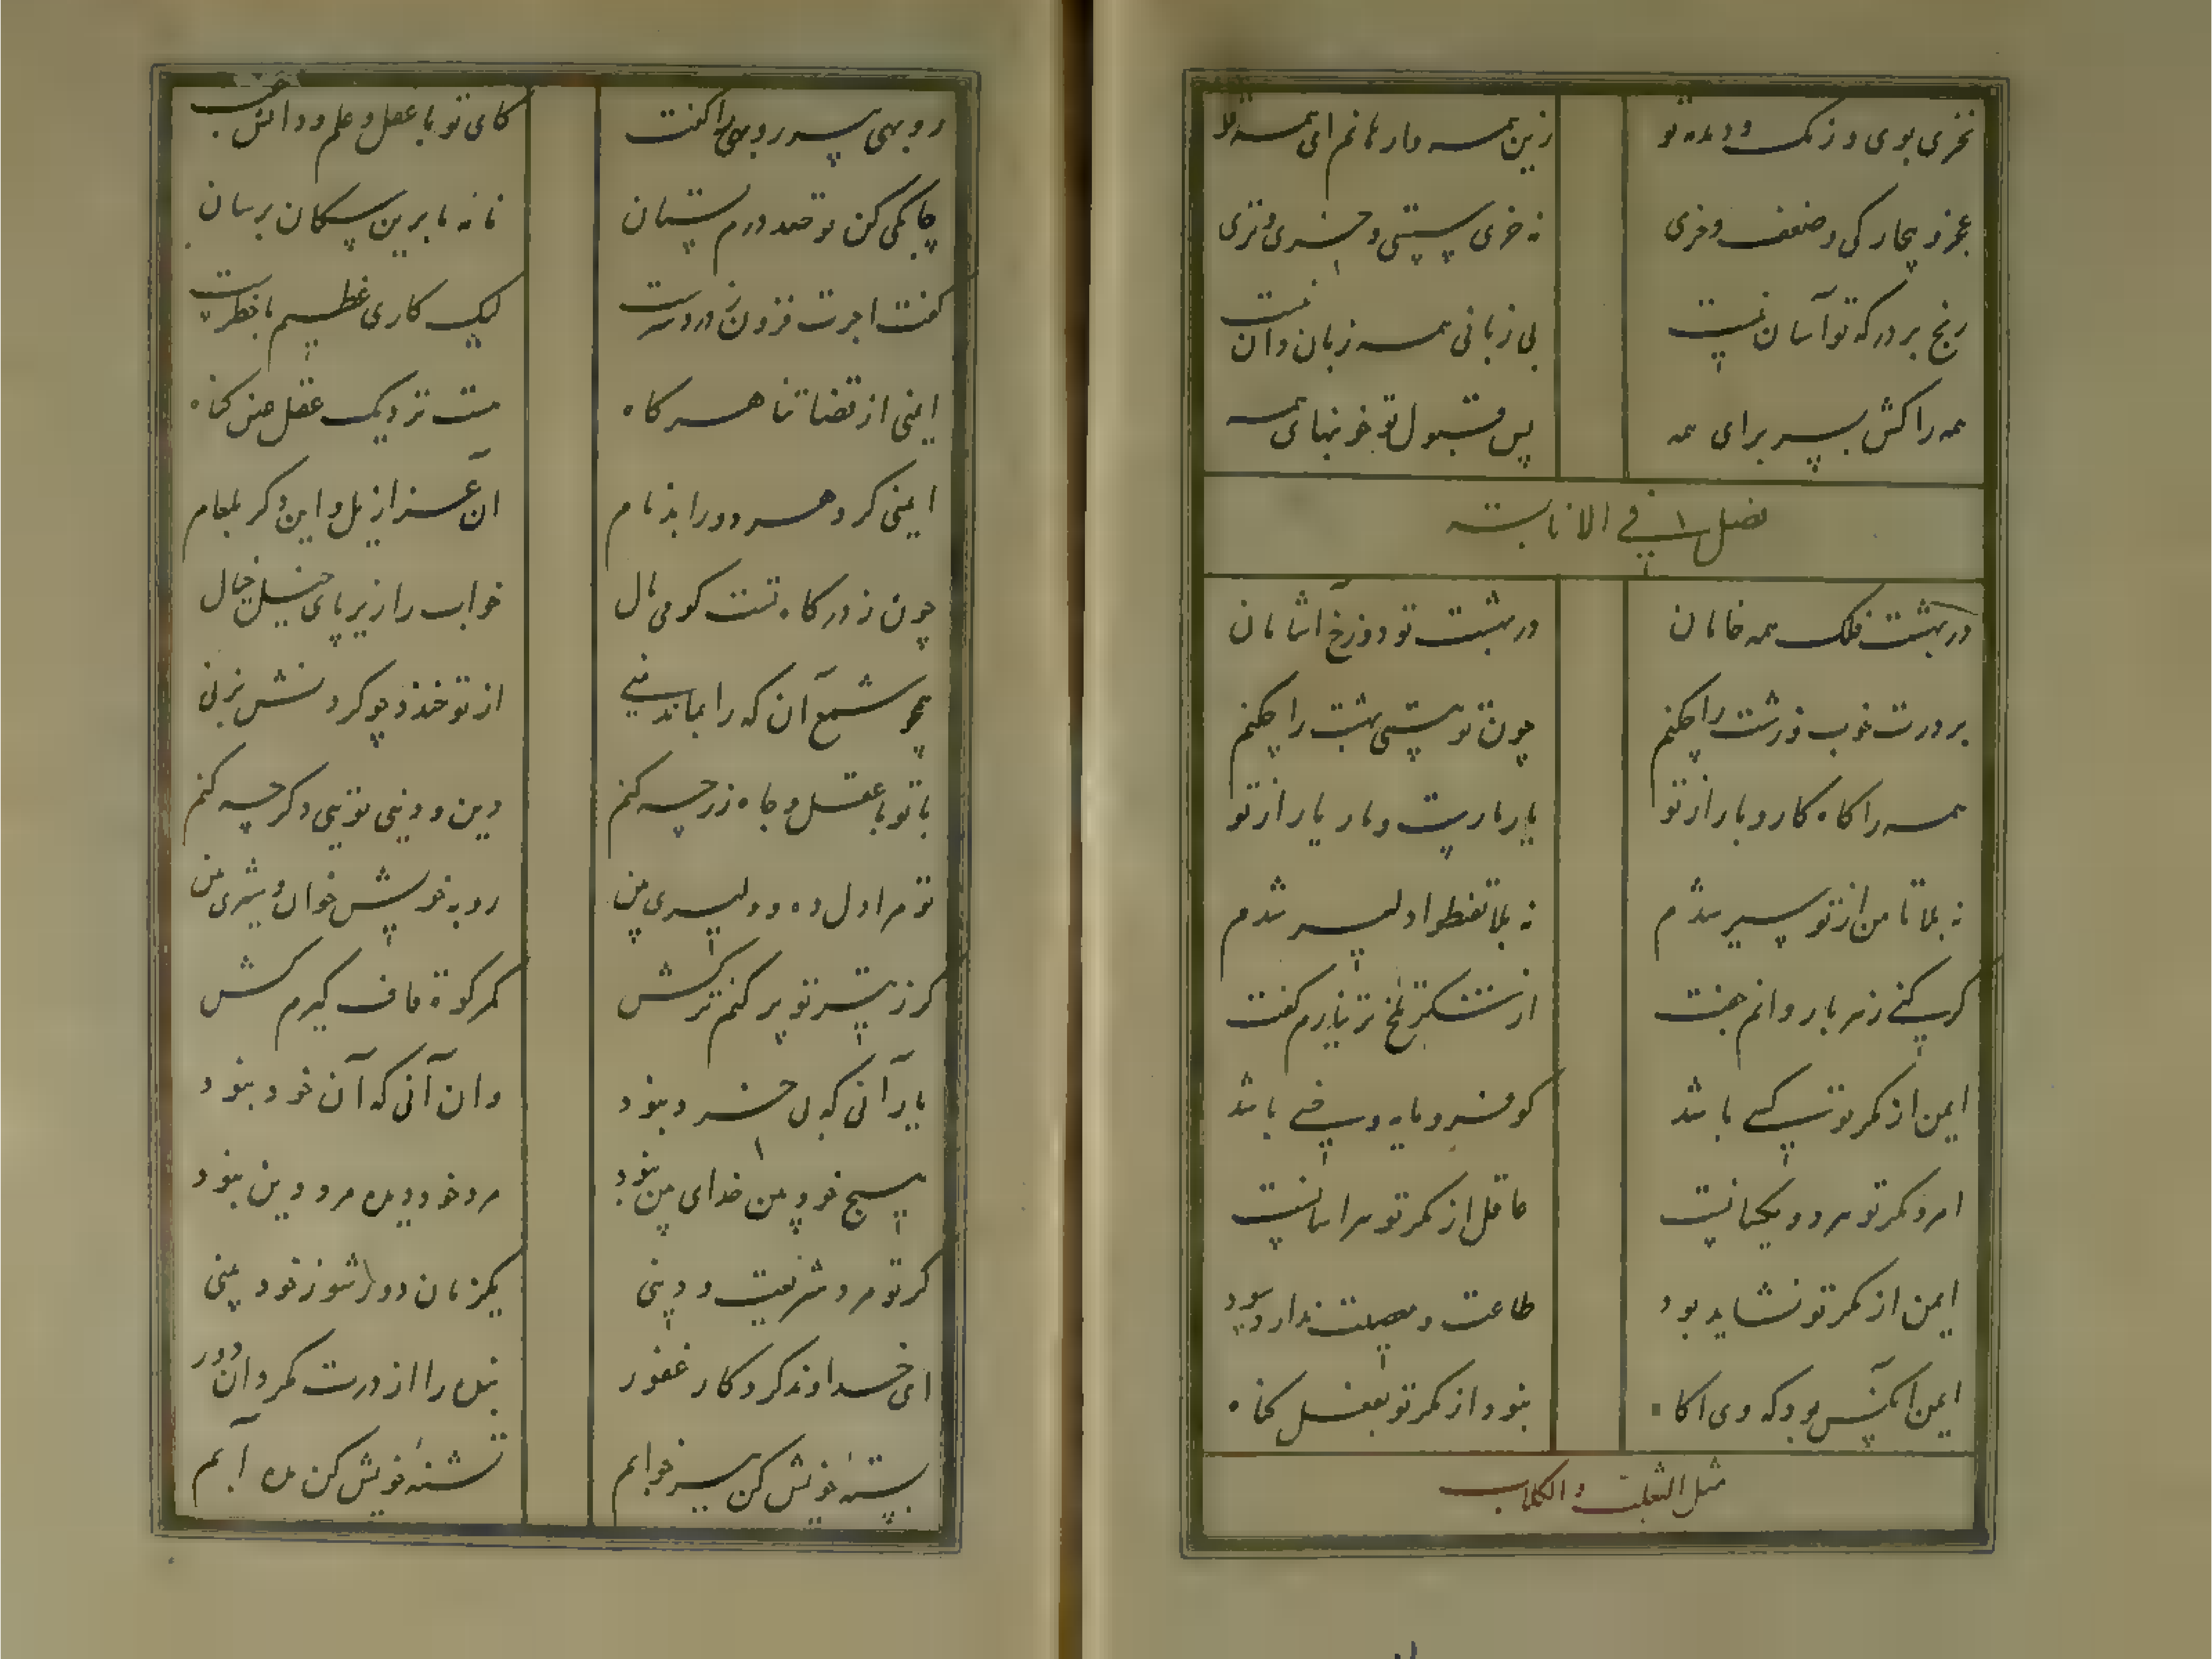 نخری بوی و رنگ و دمدمه تو
زین همه وارهانم ای همه تو
عجز و بیچارگی و ضعف و خری
نه خری سستی و خسری و تری
رنج بر درگه تو آسانیست
بی زبانی همه زبان دانیست
همه را کش بسر برای همه
پس قبول تو خونبهای همه
فصل فی الانابة
در بهشت فلک همه خامان
در بهشت تو دوزخ آشامان
بر درت خوب و زشت را چکنم
چون تو هستی بهشت را چکنم
همه را گاه کار و بار از تو
یار مارست و مار یار از تو
نه بلا تأمن از تو سیر شدم
نه بلا تقنطوا دلیر شدم
گر کنی زهر با روانم جفت
از شکر تلخ تر نیارم گفت
ایمن از مکر تو کسی باشد
کو فرومایه و خسی باشد
امر و مکر تو هر دو یکسانیست
عاقل از مکر تو هراسانیست
ایمن از مکر تو نشاید بود
طاعت و معصیت ندارد سود
ایمن آنکس بود که وی آگاه
نبود از مکر تو بفعل گناه
مثل الثعلب و الکلاب
روبهی پیر روبهی را گفت
کای تو با عقل و علم و دانش جفت
چابکی کن دو صد درم بستان
نامه ما برین سگان برسان
گفت اجرت فزون ز درد سرست
لیک کاری عظیم با خطرست
ایمنی از قضات ناهرگاه
هست نزدیک عقل عین گناه
ایمنی کرد هر دو را بدنام
آن عزازیل و این دگر بلعام
چون ز درگاه تست گو می مال
خواب را زیر پای خیل خیال
همچو شمع آن که را نماند منی
از تو خندد چو گردنش بزنی
با تو با عقل و جاه زر چه کنم
دین و دینی توئی دگر چه کنم
تو مرا دل ده و دلیری بین
روبه خویش خوان و شیری بین
گر ز تیر تو پر کنم ترکش
کمر کوه قاف گیرم کش
یار آنی که بی خرد نبود
وان آنی که آن خود نبود
هیچ خودبین خدای بین نبود
مرد خود دیده مرد دین نبود
گر تو مرد شریعت و دینی
یک زمان دور شو ز خود بینی
ای خداوند کردگار غفور
بنده را از درت مگردان دور
بستهٔ خویش کن ببر خوابم
تشنهٔ خویش کن مده آبم